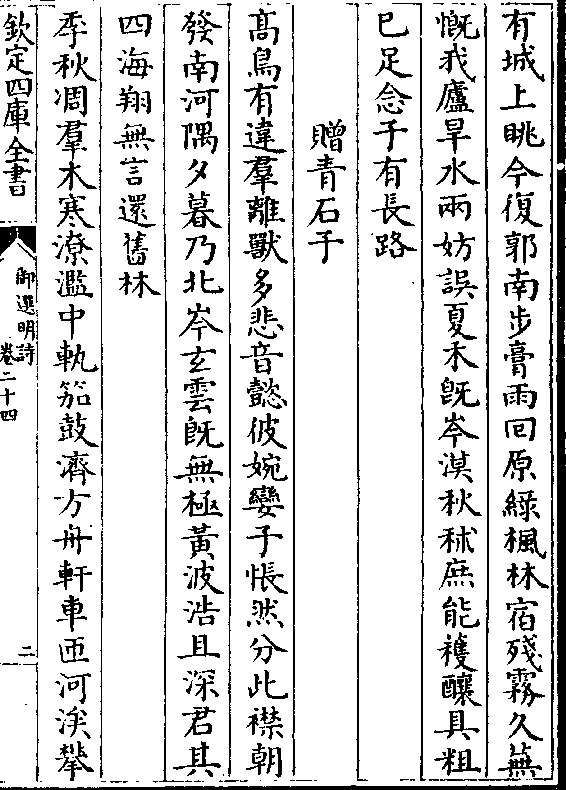 有城上眺今復郭南步膏雨回原綠楓林宿殘霧久蕪
慨我廬旱水兩妨誤夏禾既岑漠秋秫庶能穫釀具粗
已足念子有長路
贈青石子
高鳥有違羣離獸多悲音懿彼婉孌子悵然分此襟朝
發南河隅夕暮乃北岑玄雲既無極黃波浩且深君其
四海翔無言還舊林
季秋凋羣木寒潦濫中軌笳鼓濟方舟軒車匝河涘攀
欽定四庫全書
御選明詩
卷二十四
二